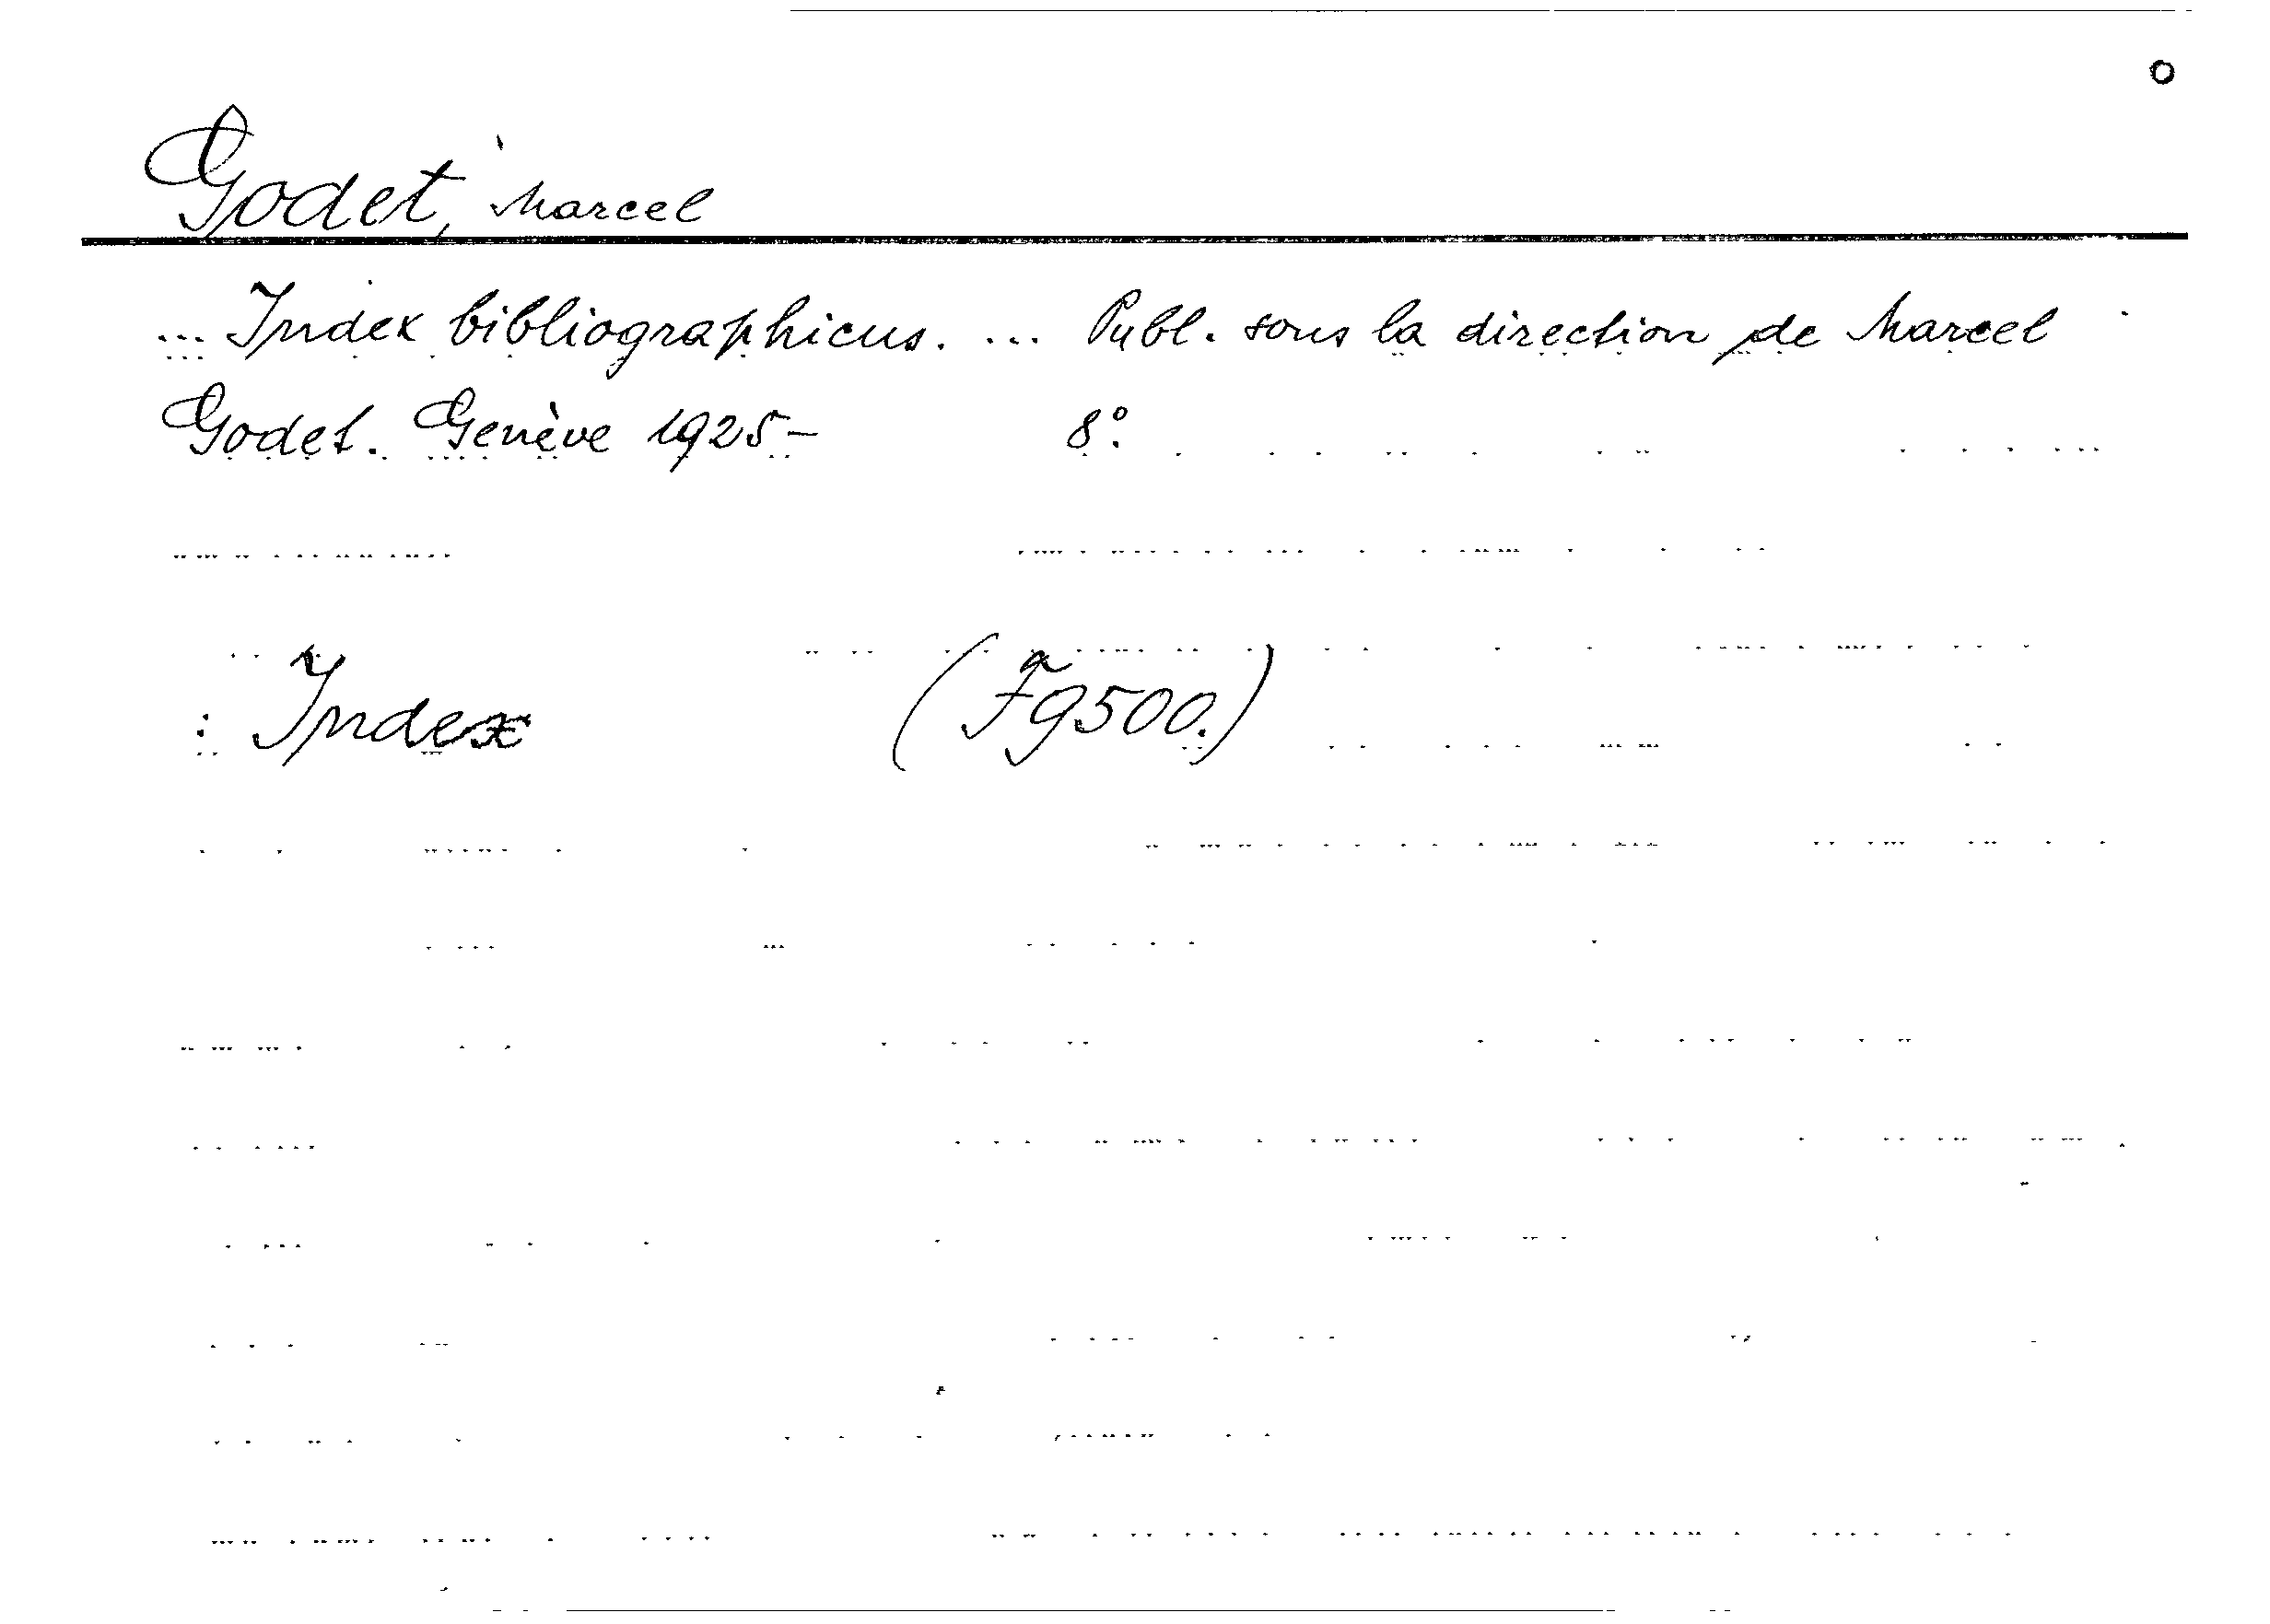 Godet, Marcel
... Index bibliographicus. ... Publ. sous la direction de Marcel
Godet. Genève 1925- 8°.
: Index (Fg500.)